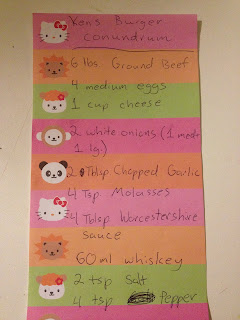 Ken's Burger
conundrum
6 lbs Ground Beef
4 medium eggs
1 cup cheese
2 white onions (1 med
1 lg.)
2 Tblsp Chopped Garlic
4 Tsp Molasses
4 Tblsp Worcestershire
sauce
60ml whiskey
2 tsp Salt
4 tsp Pepper